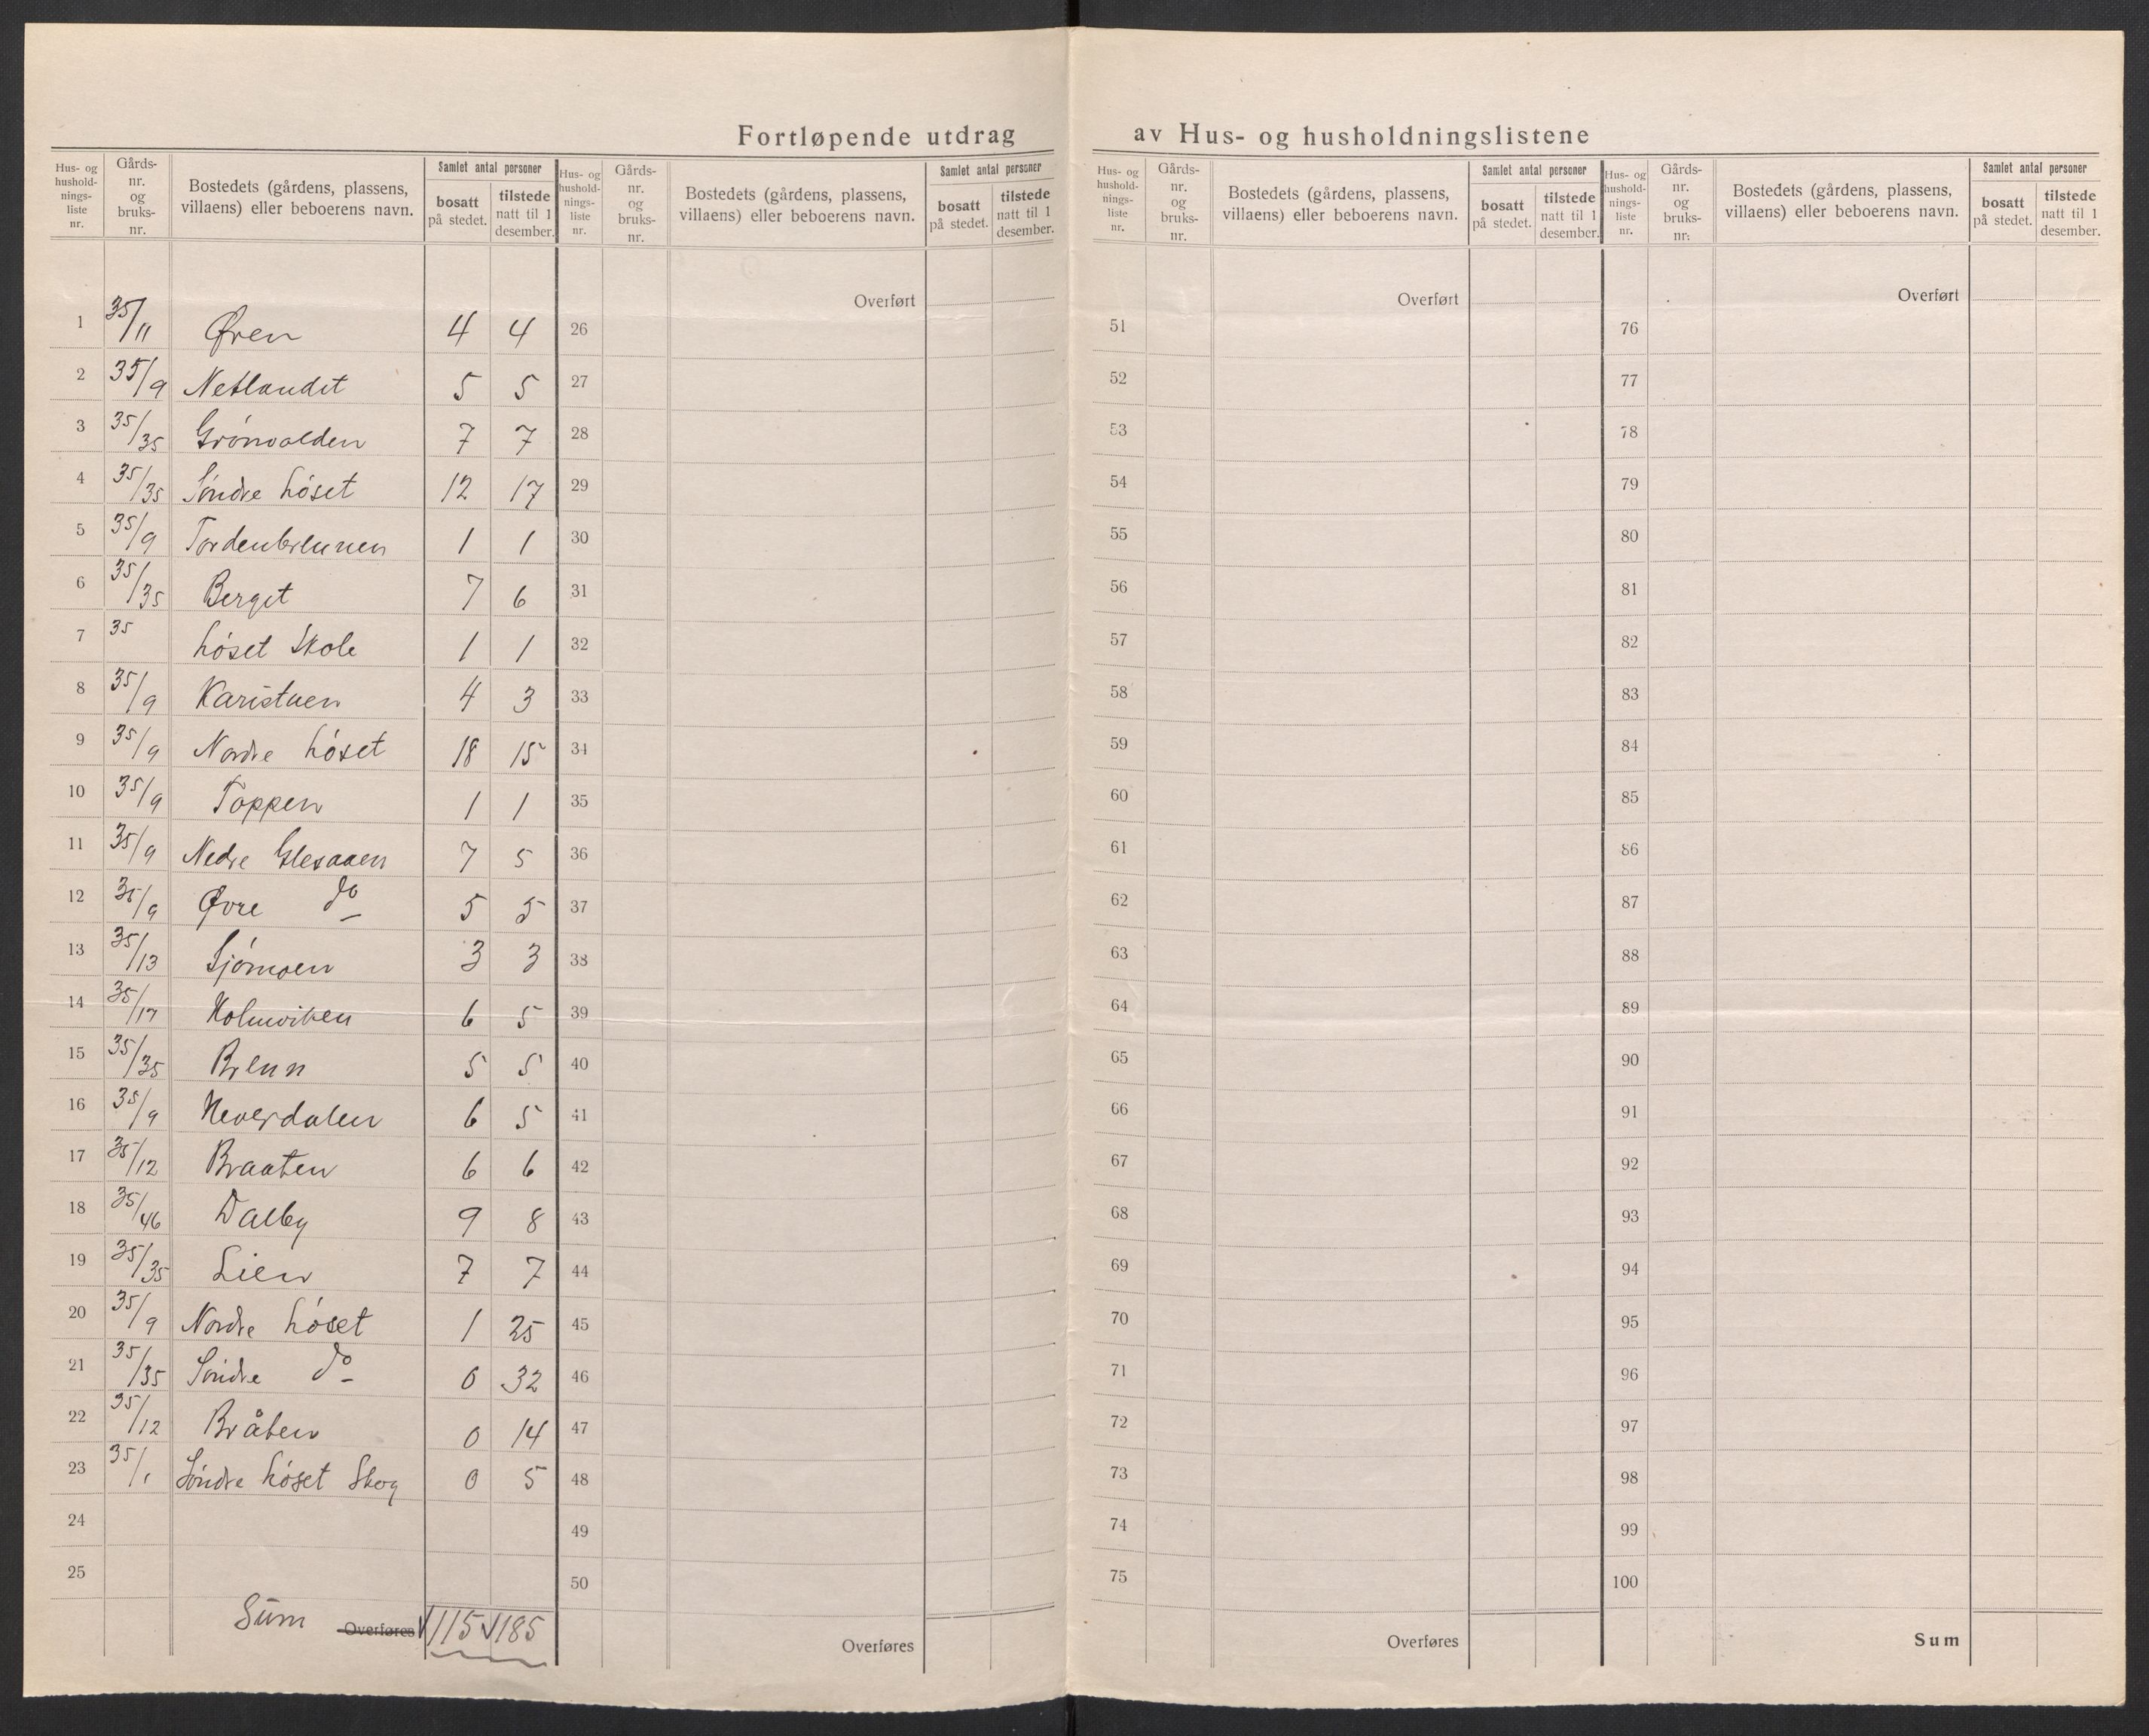 Fortløpende utdrag av Hus- og husholdningslistene
Hus- og hushold-nings-liste nr. Gårds-nr. og bruks-nr. Bostedets (gårdens, plassens, villaens) eller beboerens navn. Samlet antal personer bosatt på stedet. tilstede natt til 1 desember.
Hus- og hushold-nings-liste nr. Gårds-nr. og bruks-nr. Bostedets (gårdens, plassens, villaens) eller beboerens navn. Samlet antal personer bosatt på stedet. tilstede natt til 1 desember.
Hus- og hushold-nings-liste nr. Gårds-nr. og bruks-nr. Bostedets (gårdens, plassens, villaens) eller beboerens navn. Samlet antal personer bosatt på stedet. tilstede natt til 1 desember.
Hus- og hushold-nings-liste nr. Gårds-nr. og bruks-nr. Bostedets (gårdens, plassens, villaens) eller beboerens navn. Samlet antal personer bosatt på stedet. tilstede natt til 1 desember.
Overført Overført Overført
1 35/11 Øren 4 4 26 51 76
2 35/9 Netlandet 5 5 27 52 77
3 35/35 Grónvolden 7 7 28 53 78
4 35/35 Sóndre Lóset 12 17 29 54 79
5 35/9 1 1 30 55 80
6 35/35 Berget 7 6 31 56 81
7 35 Lóset Skole 1 1 32 57 82
8 35/9 Karistuen 4 3 33 58 83
9 35/9 Nordre Lóset 18 15 34 59 84
10 35/9 Toppen 1 1 35 60 85
11 35/9 Nedre Glesaaen 7 5 36 61 86
12 35/9 Øvre do 5 5 37 62 87
13 35/13 Sjómoen 3 3 38 63 88
14 35/17 Holmviken 6 5 39 64 89
15 35/35 Brenn 5 5 40 65 90
16 35/9 Neverdalen 6 5 41 66 91
17 35/12 Braaten 6 6 42 67 92
18 35/46 Dalby 9 8 43 68 93
19 35/35 Lien 7 7 44 69 94
20 35/9 Nordre Lóset 1 25 45 70 95
21 35/35 Sóndre do 0 32 46 71 96
22 35/12 Bråten 0 14 47 72 97
23 35/1 Sóndre Lóset Skog 0 5 48 73 98
24 49 74 99
25 50 75 100
Sum Overføres 115 185 Overføres Overføres Sum